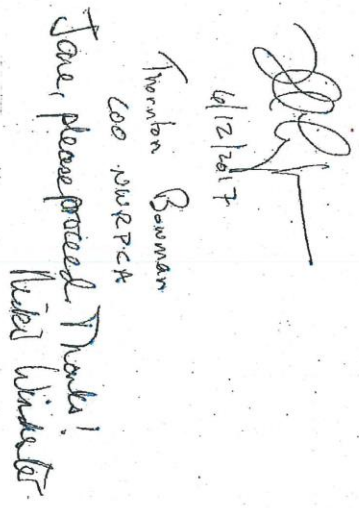 6/12/2017
Thornton Bowman
COO NWRPCA
Jane, please proceed. Thanks!
Nikki Winchester